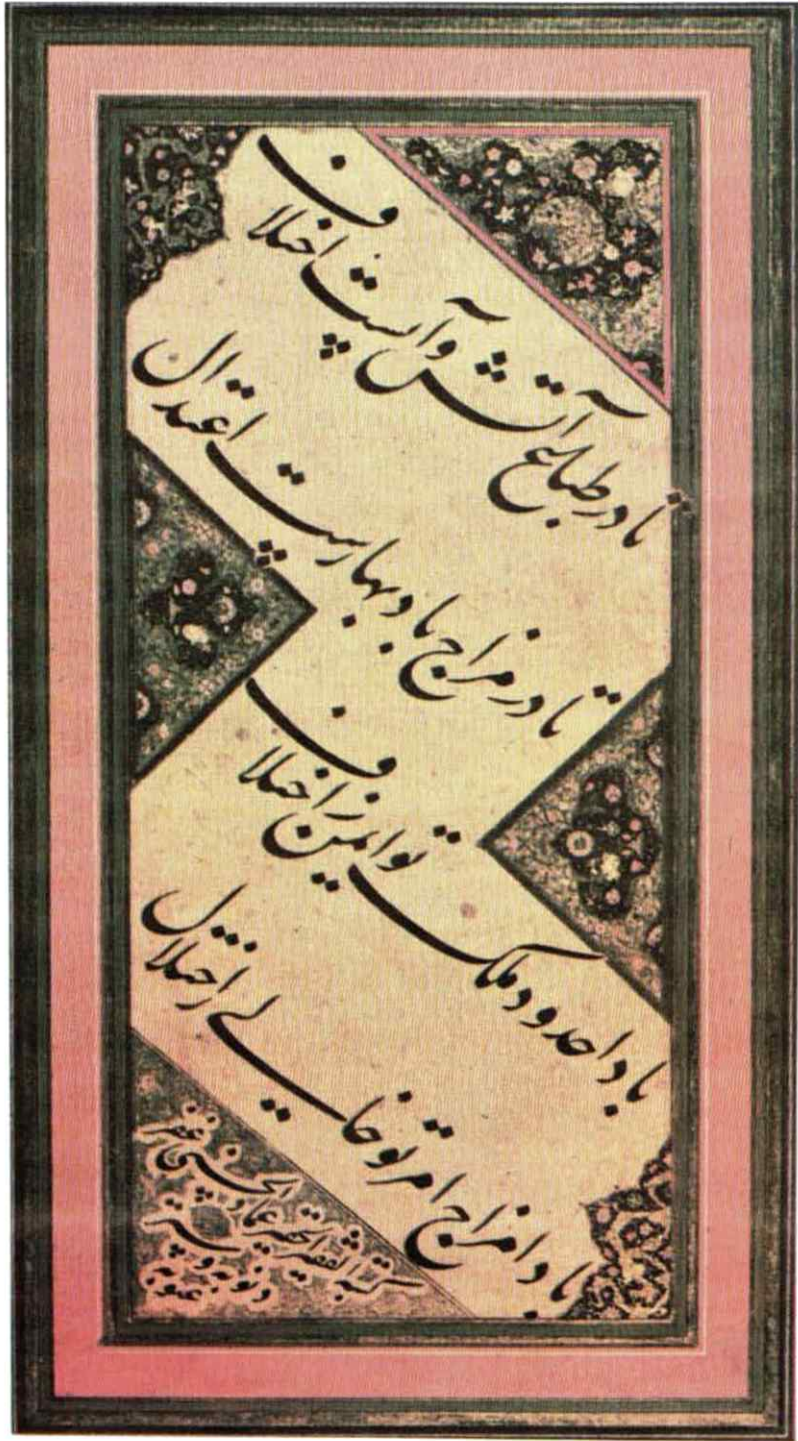 تا در طبایع آتش و آبست اختلاف
تا در مزاج باد بهارست اعتدال
بادا حدود ملک تو ایمن ز اختلاف
بادا مزاج امر تو خالی ز اختلال
کتبه الفقیر الحقیر
عماد الحسنی غفر
ذنوبه و ستر
عیوبه